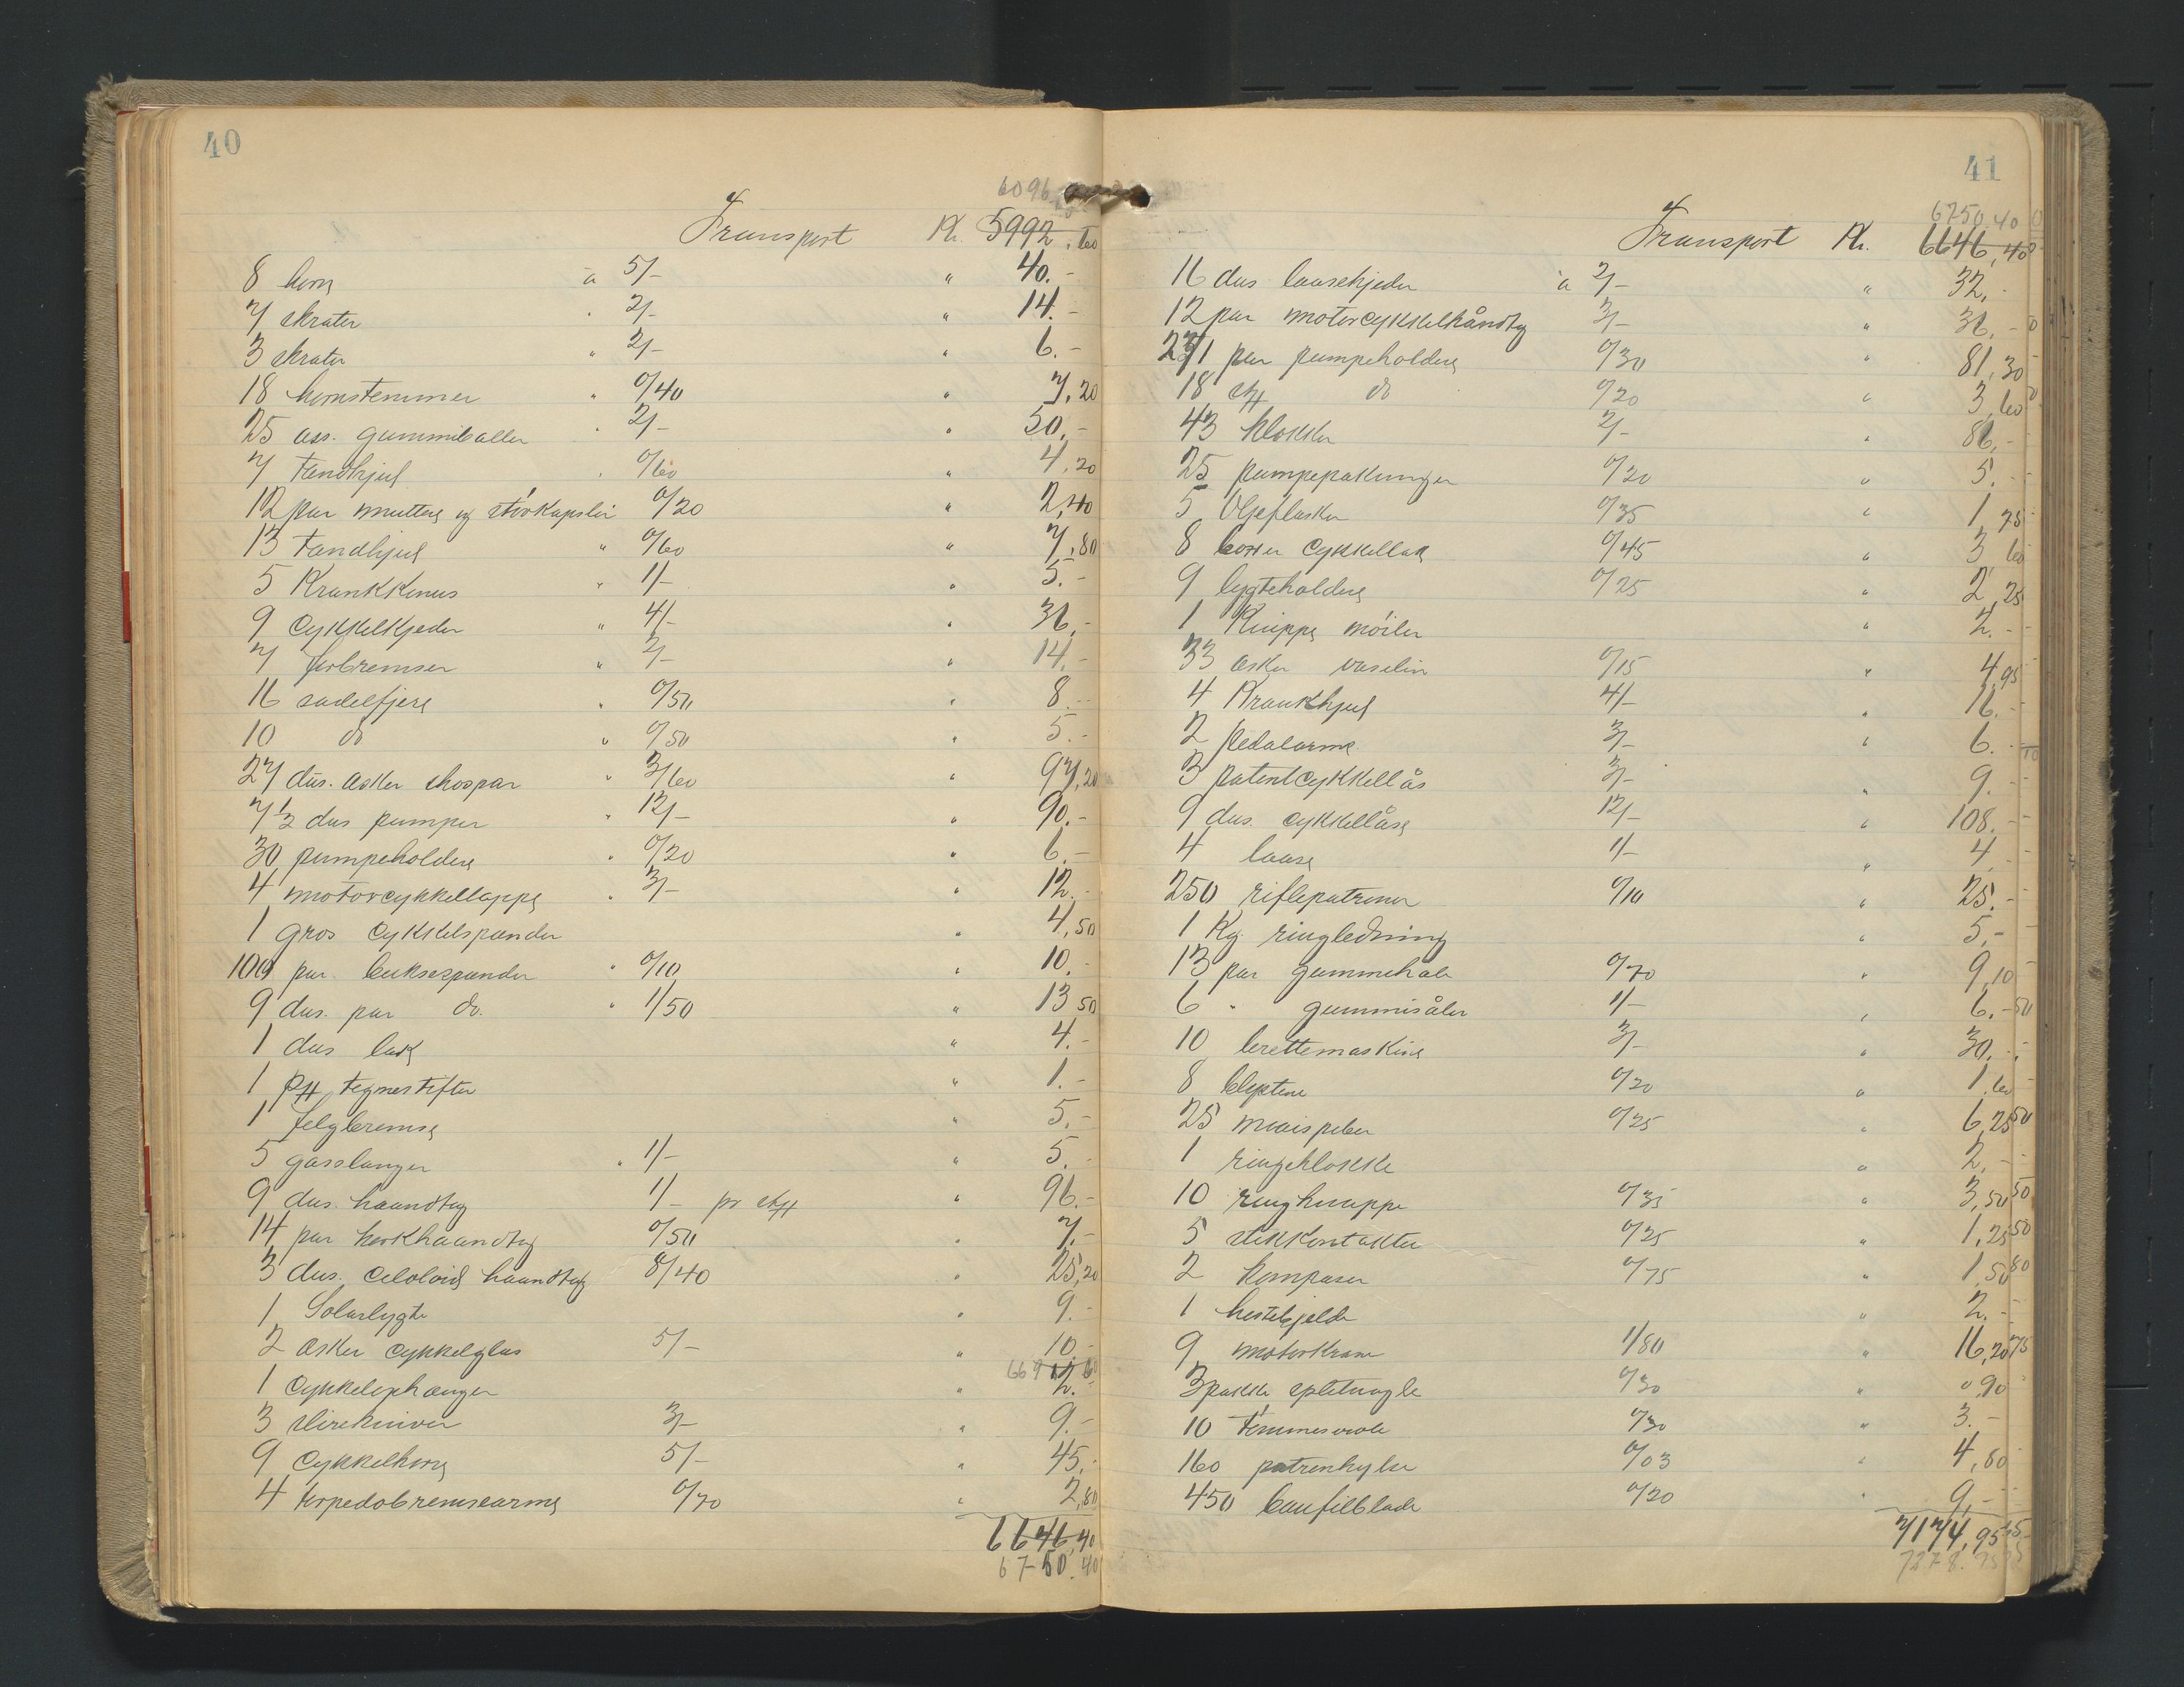 40
6096,60
Transport Kr. 5992,60
8 horn à 5/- " 40.-
7 skrater " 2/- " 14.-
3 skrater " 2/- " 6.-
18 hornstemmer " 0/40 " 7,20
25 ass. gummiballer " 2/- " 50.-
7 tandhjul " 0/60 " 4,20
12 par muttere og støvkapsler 0/20 " 2,40
13 tandhjul " 0/60 " 7,80
5 Krankkonus " 1/- " 5.-
9 Cykkelkjeder " 4/- " 36.-
7 forbremser " 2/- " 14.-
16 sadelfjere " 0/50 " 8.-
10 do " 0/50 " 5.-
27 dus. æsker skospar " 3/60 " 97,20
7½ dus pumper " 12/- " 90.-
30 pumpeholdere " 0/20 " 6.-
4 motorcykkellappe " 3/- " 12.-
1 gros Cykkelspænder " 4,50
100 par buksespænder " 0/10 " 10.-
9 dus. par do. " 1/50 " 13 50
1 dus lak " 4.-
1 pk tegnestifter " 1.-
1 Felgbremse " 5.-
5 gasslanger " 1/- " 5.-
9 dus. haandtag 1/- pr stk " 96.-
14 par korkhaandtag 0/50 " 7.-
3 dus. Celoloid haandtag 8/40 " 25,20
1 Solarlygte " 9.-
2 æsker cykkelglas 5/- " 10.-
1 Cykkelophænger " 2.-
3 slirekniver 3/- " 9.-
9 Cykkelhorn 5/- " 45.-
4 torpedobremsearme 0/70 " 2,80
6646,40
6750.40
41
6750,40
Transport Kr. 6646,40
16 dus laasekjeder à 2/- " 32.-
12 par motorcykkelhåndtag 3/- " 36.-
271 par pumpeholdere 0/30 " 81,30
18 stk do 0/20 " 3,60
43 klokker 2/- " 86.-
25 pumpepakninger 0/20 " 5.-
5 Oljeflasker 0/35 " 1,75
8 bokser Cykkellak 0/45 " 3 60
9 lygteholdere 0/25 " 2,25
1 Knippe møiler " 2.-
33 æsker vaselin 0/15 " 4,95
4 Krankhjul 4/- " 16.-
2 pedalarme 3/- " 6.-
3 patentcykkellås 3/- " 9.-
9 dus. cykkellåse 12/- " 108.-
4 laase 1/- " 4.-
250 riflepatroner 0/10 " 25.-
1 Kg. ringledning " 5.-
13 par gummihæle 0/70 " 9,10
6 " gummisåler 1/- " 6.-
10 berettemaskine 3/- " 30.-
8 blyptene 0/20 " 1,60
25 maispiber 0/25 " 6,25
1 ringeklokke " 2.-
10 ringknappe 0/35 " 3,50
5 stikkontakter 0/25 " 1,25
2 kompasser 0/75 " 1,50
1 hestebjelde " 2.-
9 motorkrane 1/80 " 16,20
3 pakke spletnagle 0/30 " 0,90
10 tømmesvøle 0/30 " 3.-
160 patronhylse 0/03 " 4,80
450 baufilblade 0/20 " 9.-
7174,95
7278.95